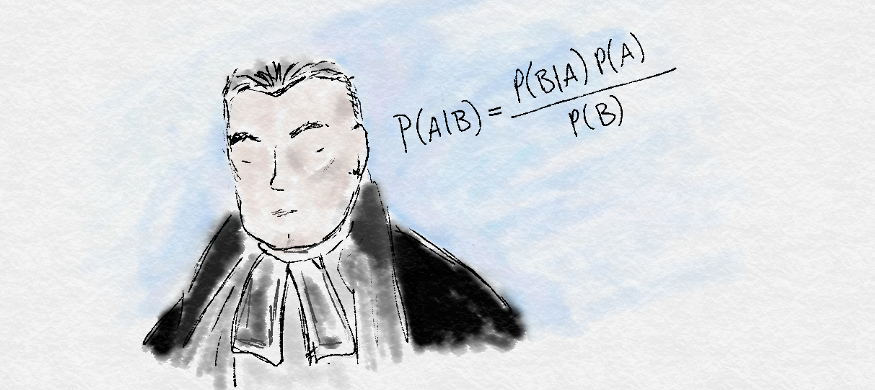 P(A|B) = P(B|A) P(A)
P(B)